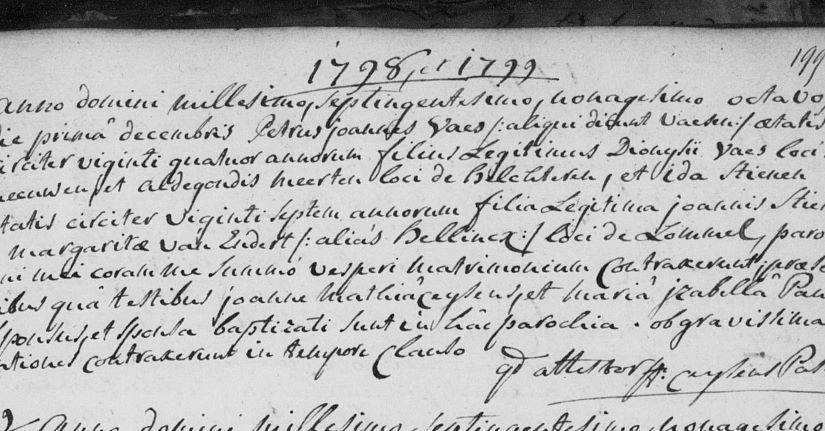 1798, et 1799
199
anno domini millesimo, septingentesimo, nonagesimo octavo
die primâ decembris Petrus joannes Vaes /: aliqui dicunt Vaesen :/ ætatis
circiter viginti quatuor annorum filius Legitimus Dionysii Vaes loci
meeuwen, et aldegondis meerten loci de Helchteren, et ida Stienen
tatis circiter viginti septem annorum filia Legitima joannis Stien
margaritæ van Endert /: aliàs Hellincx :/ loci de Lommel, paro
ni mei coram me Summo vesperi matrimonium contraxerunt, præse
ibus quâ testibus joanne mathiâ ceysens, et mariâ jzabellâ Pan
Sponsus, et Sponsa baptizati Sunt in hâc parochia. ob gravissima
ationes contraxerunt in tempore Clauso
qd attestor ceysens Pas
anno domini millesimo, septingentesimo, nonagesimo